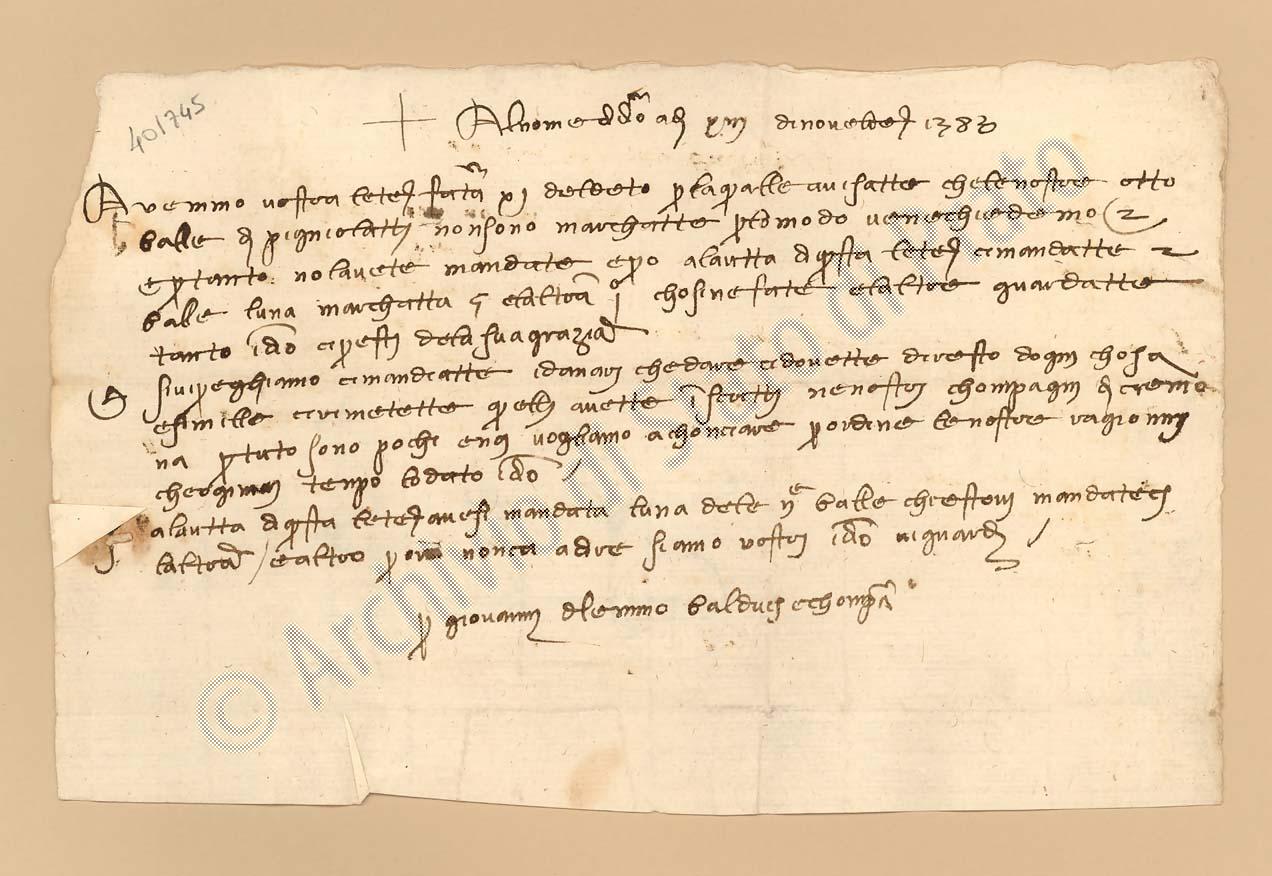 401745
Al nome ddio adi xiii di novebre 1383
Avemmo vostra letera fatta xi deldeto p la qualle avisatte che le nostre otto
balle di pigniolatti non sono marchatte p lo modo ve ne chiedemo 2
e p tanto no lavete mandate e po alautta di questa letera ci mandatte 2
bale luna marchatta e laltra chosi ne fate e laltre guardatte
tanto idio ci presti dela sua grazia
E si vi preghiamo ci mandiatte i danari che dare ci dovette di resto dogni chosa
e simille ci rimetette queli avette i scritti ne nostri chompagni di Cremo
na p tuto sono pochi e noi vogliamo achonciare p ordine le nostre ragionni
che ogimai tenpo lodato idio
S alautta di questa letera avesi mandata luna dele 2 balle chiestovi mandateci
laltra / e altro p ora nonca a dire siamo vostri idio vi guardi /
p giovanni dlemmo balduci e chompa
© Archivio di Stato di Prato